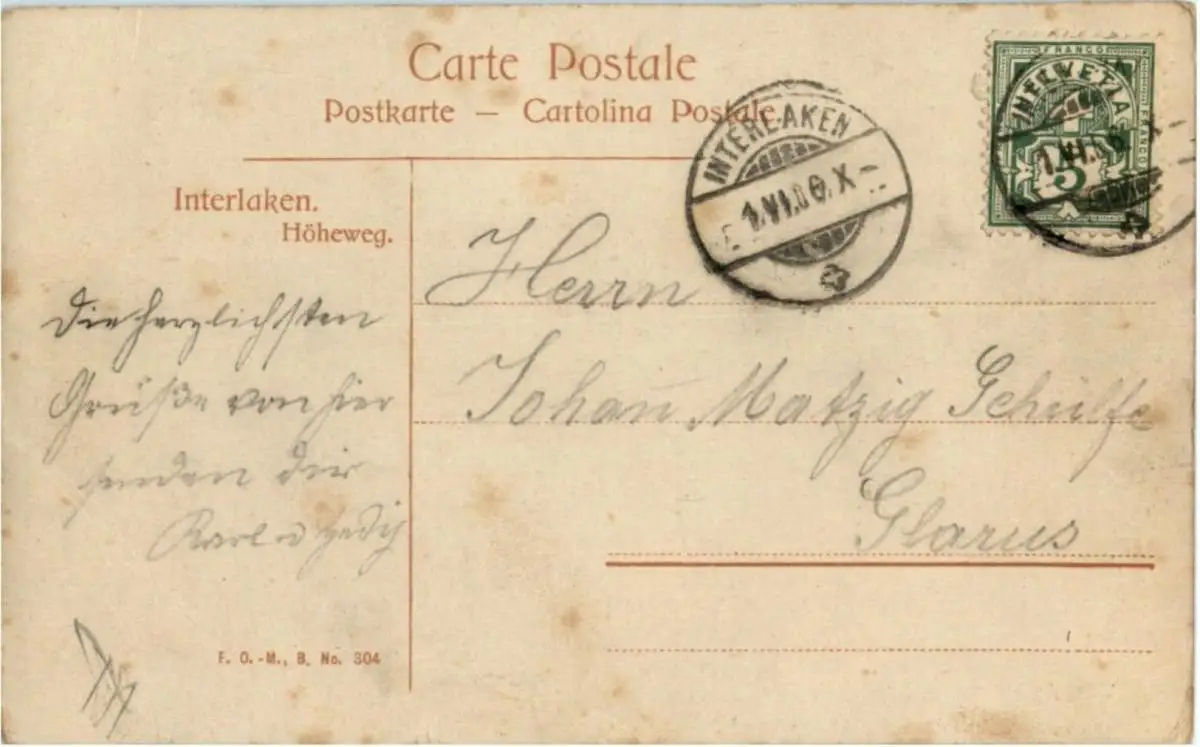 Carte Postale
Postkarte — Cartolina Postale.
FRANCO
HELVETIA
FRANCO
5
INTERLAKEN
1.VI.06. X –
1.VI.06. X –
Interlaken.
Höheweg.
Herrn
Johan̄ Matzig Gehülfe
Glarus
Die herzlichsten
Grüße von hier
senden dir
Karl
F. O.-M., B. No. 304